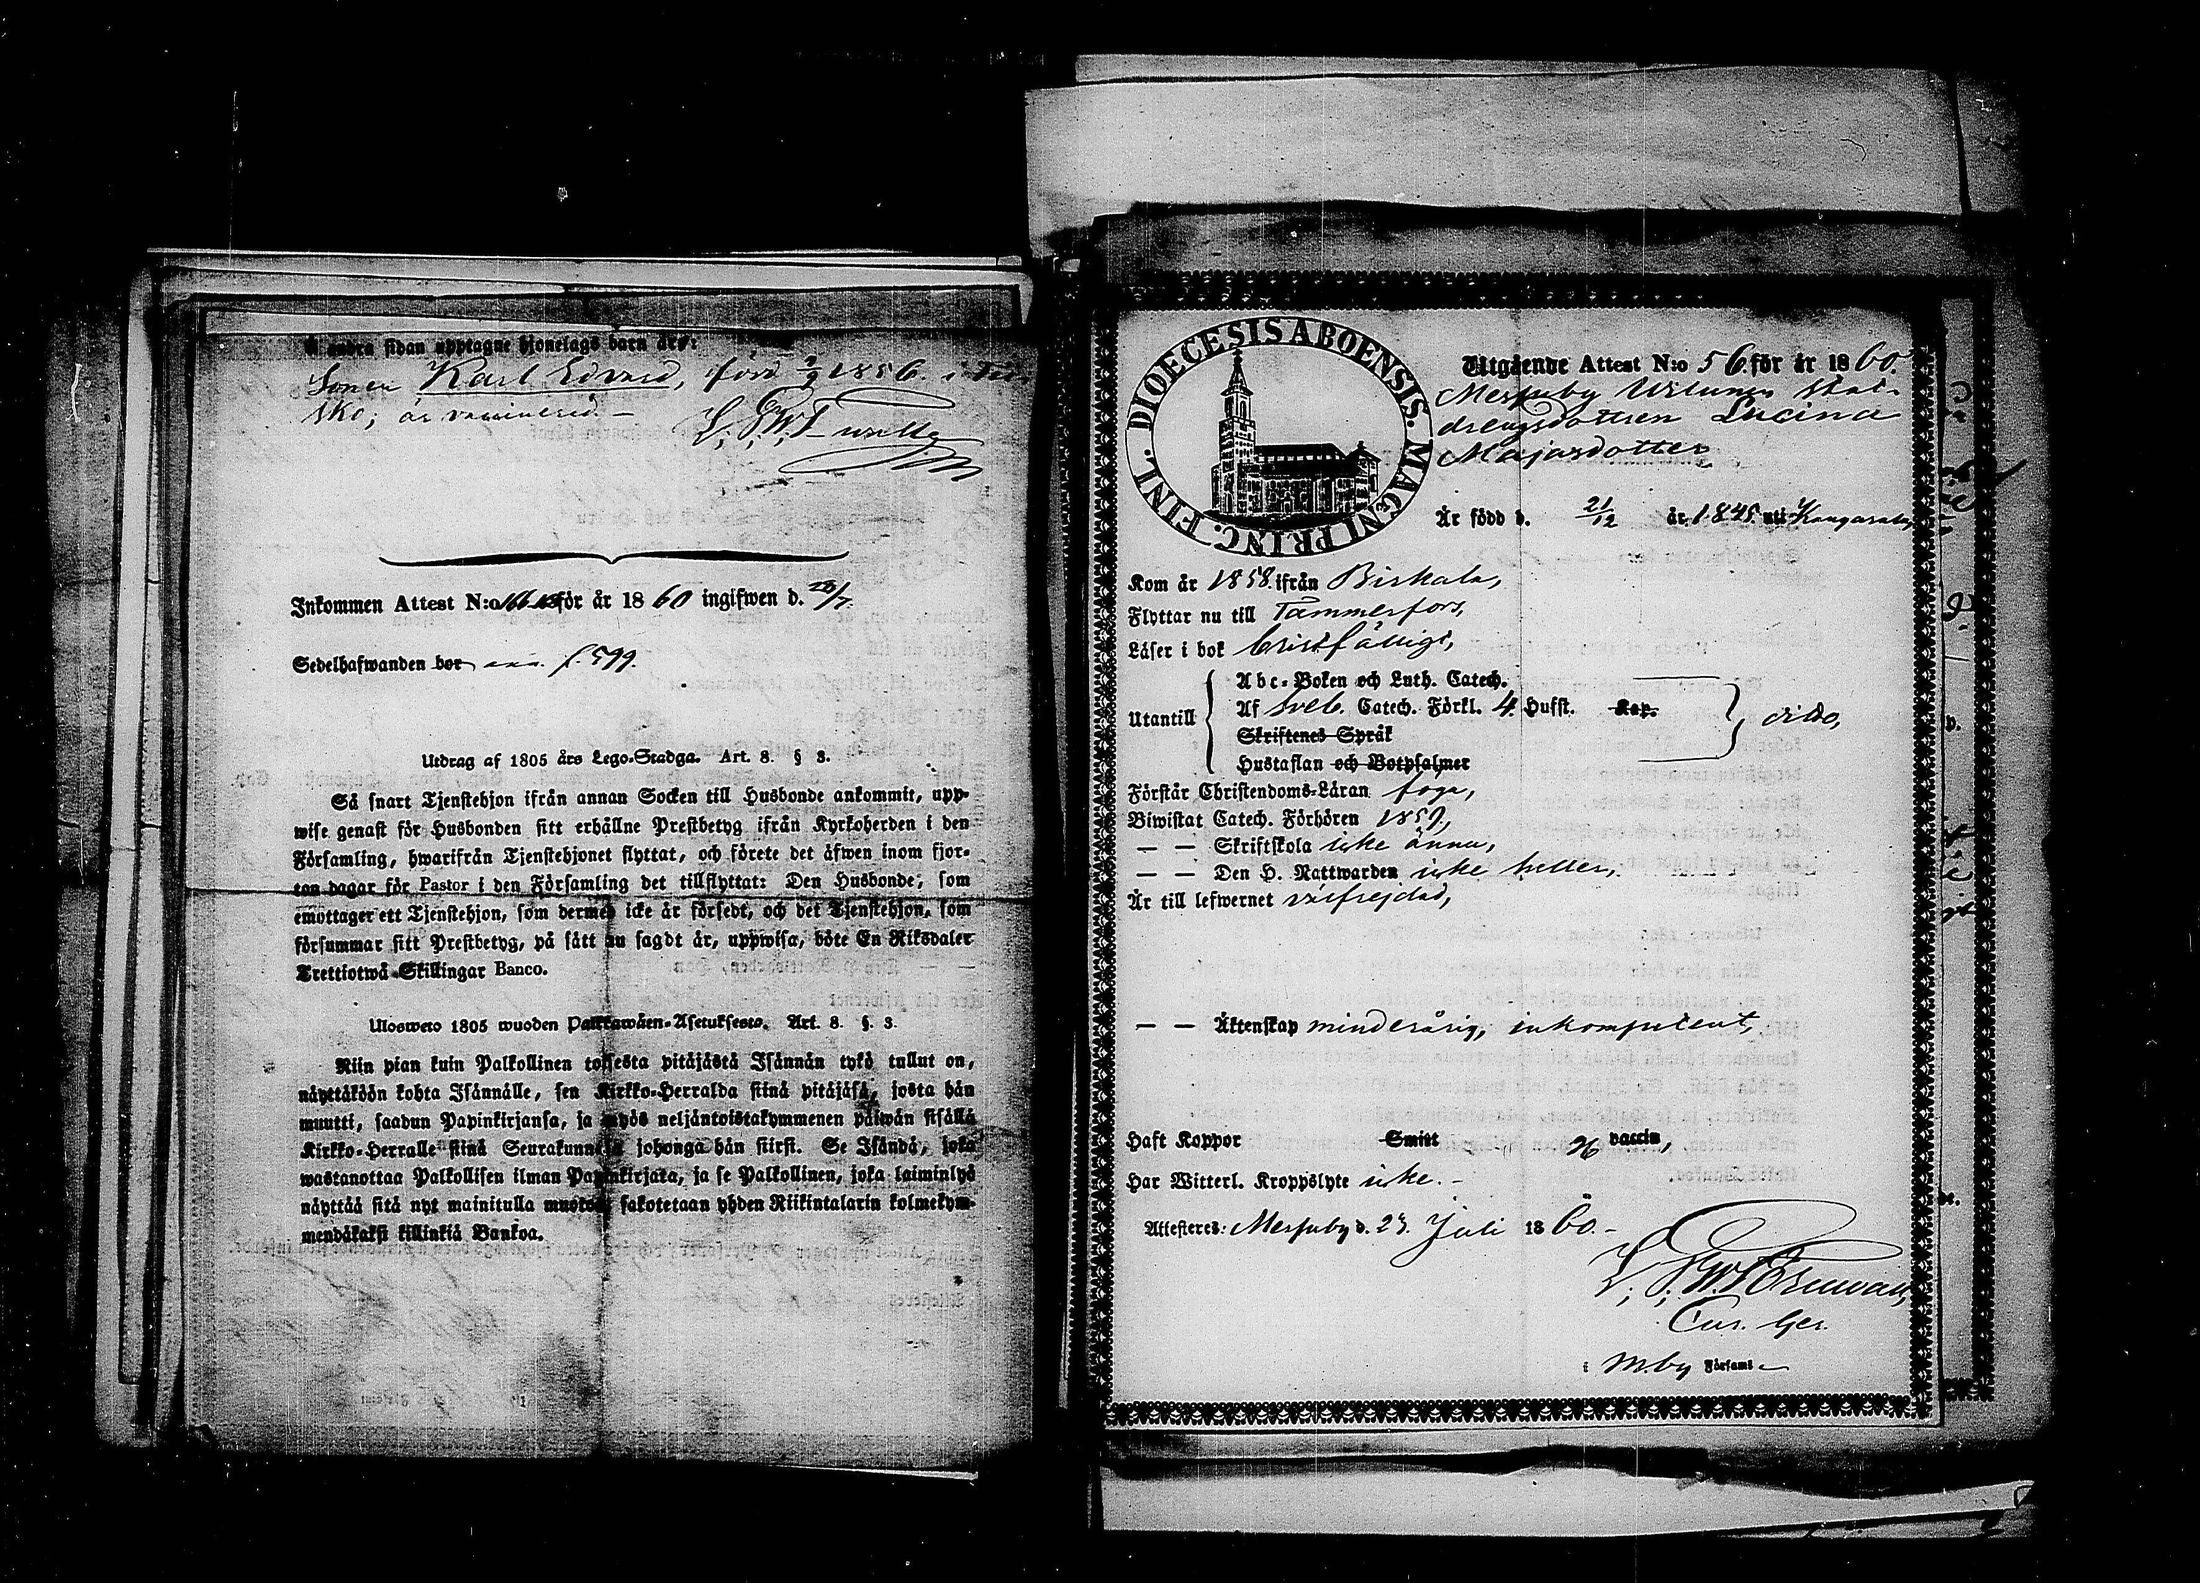 å andra sidan upptagne hjonelags barn äro:
Sonen Karl Edvard, född 2/9 1856. i
sko; är vaccinerad. –
Inkommen Attest N:o för år 1860 ingifwen d. 28/7.
Sedelhafwanden bor f. 599.
Utdrag af 1805 års Lego-Stadga. Art. 8. § 3.
Så snart Tjenstehjon ifrån annan Socken till Husbonde ankommit, upp-
wise genast för Husbonden sitt erhållne Prestbetyg ifrån Kyrkoherden i den
Församling, hwarifrån Tjenstehjonet flyttat, och förete det äfwen inom fjor-
ton dagar för Pastor i den Församling det tillflyttat: Den Husbonde, som
emottager ett Tjenstehjon, som dermed icke är försedt, och det Tjenstehjon, som
försummar sitt Prestbetyg, på sätt nu sagdt är, uppwisa, böte En Riksdaler
Trettiotwå Skillingar Banco.
Ulosweto 1805 wuoden Palkkawäen-Asetuksesta. Art. 8. §. 3.
Niin pian kuin Palkollinen toisesta pitäjästä Isännän tykö tullut on,
näyttäköön kohta Isännälle, sen Kirkko-Herralda siinä pitäjäsä, josta hän
muutti, saadun Papinkirjansa, ja myös neljäntoistakymmenen päiwän sisällä
Kirkko-Herralle siinä Seurakunnasa johonga hän siirsi. Se Isändä, joka
wastanottaa Palkollisen ilman Papinkirjata, ja se Palkollinen, joka laiminlyö
näyttää sitä nyt mainitulla muotoa, sakotetaan yhden Riikintalarin kolmekym-
mendäkaksi killinkiä Bankoa.
DIOECESIS ABOENSIS. MAGNI PRINC. FINL.
Utgående Attest N:o 56 för år 1860.
Messuby
drengsdottren Lucina
Majasdotter
Är född d. 21/12 år 1845. uti Kangasala,
Kom år 1858. ifrån Birkala,
Flyttar nu till Tammerfors,
Läser i bok bristfälligt,
Abc-Boken och Luth. Catech.
Utantill Af Sveb. Catech. Förkl. 4. Hufst. Kap.
Skriftenes Språk
Hustaflan och Botpsalmer
dito,
Förstår Christendoms-Läran foga,
Biwistat Catech. Förhören 1859,
— — Skriftskola icke ännu,
— — Den H. Nattwarden icke heller,
Är till lefwernet välfrejdad,
— — Äktenskap minderårig, inkompetent,
Haft Koppor Smitt vaccin,
Har Witterl. Kroppslyte icke. –
Attesteres: Messuby d. 23. Juli 1860. –
Cur. Ger.
i M.by Församl